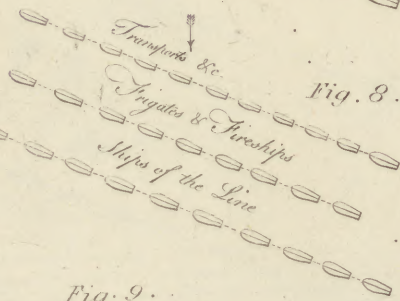 Transports &c
Fig. 8.
Frigates & Fireships
Ships of the Line
Fig. 9.